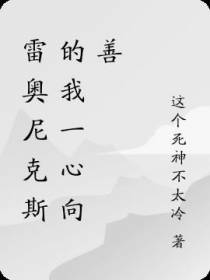 雷奥尼克斯
的我一心向
善
这个死神不太冷 著